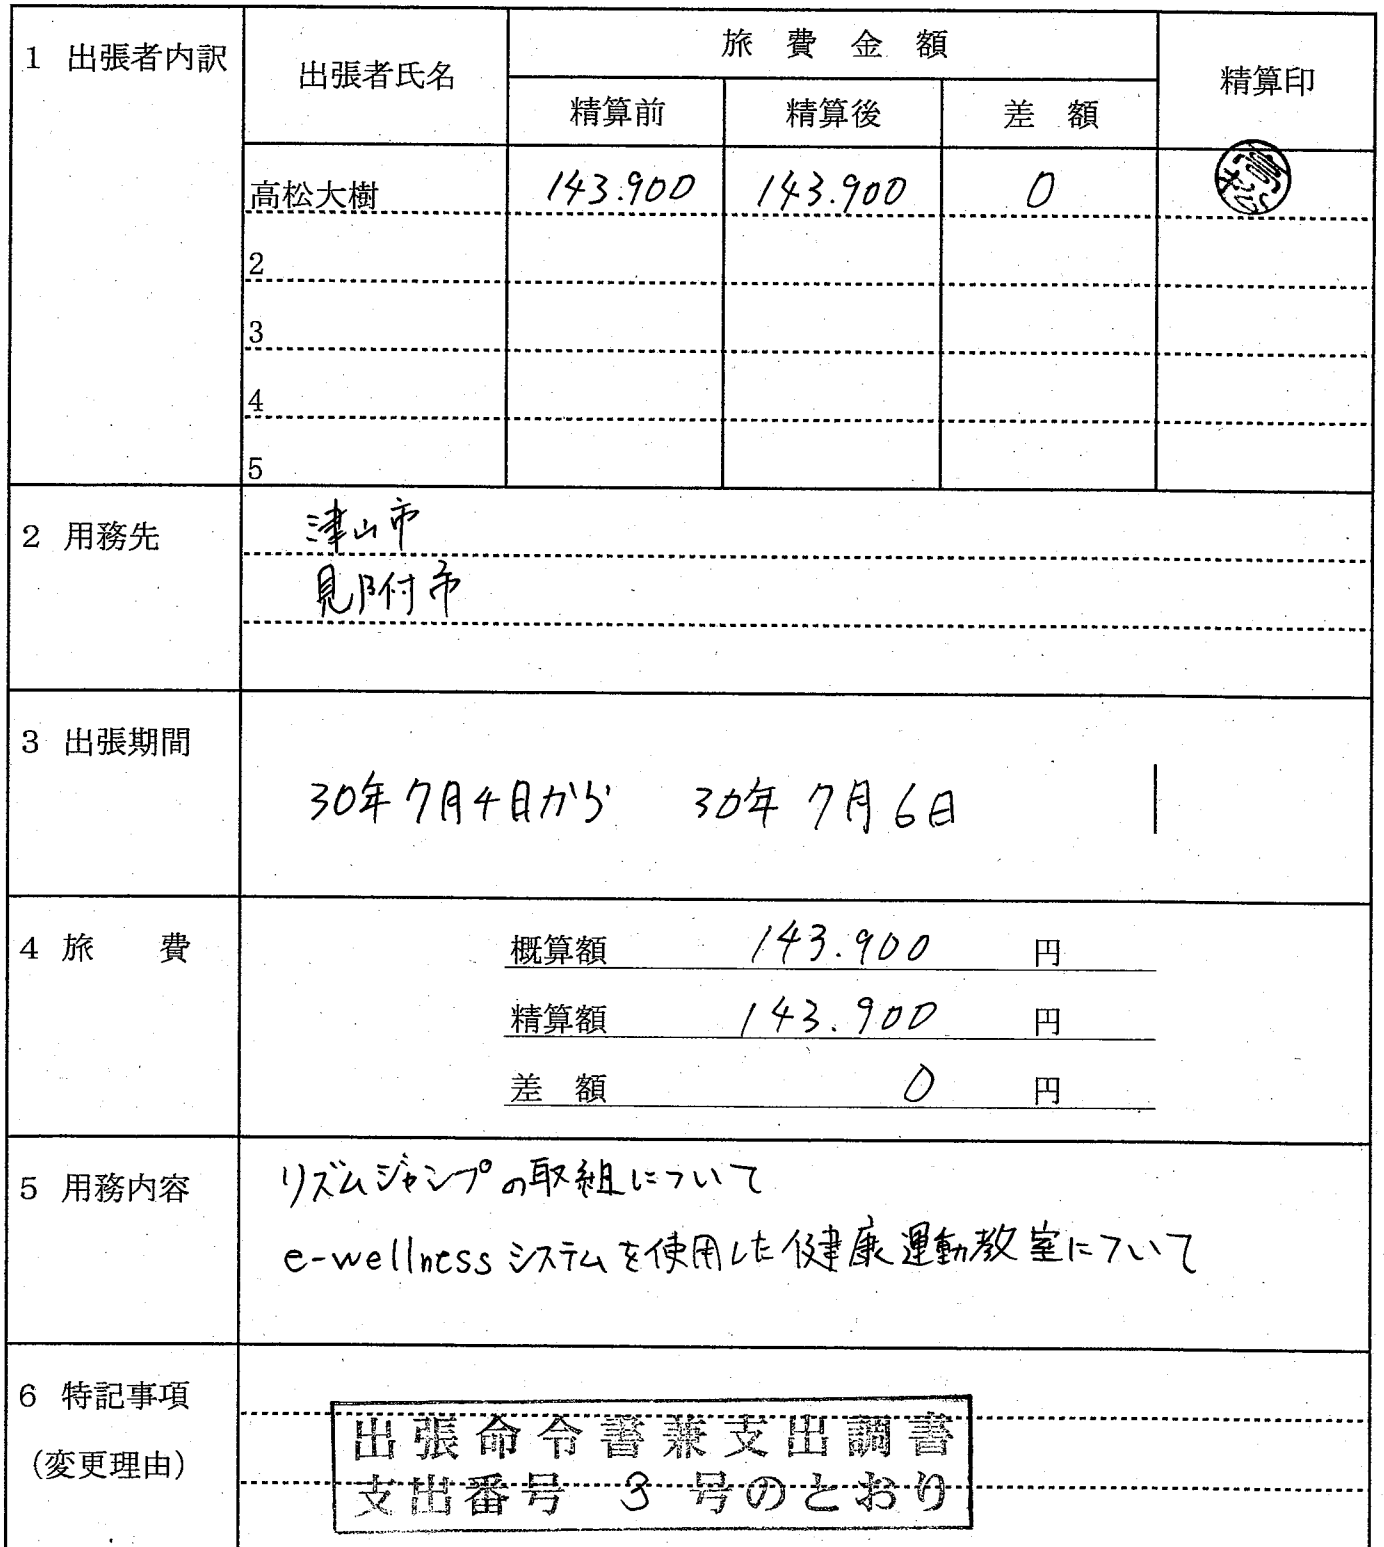 1 出張者内訳
出張者氏名
旅費金額
精算印
精算前
精算後
差額
高松大樹
143.900
143.900
0
高松
2
3
4
5
2 用務先
津山市
見附市
3 出張期間
30年7月4日から 30年7月6日
4 旅費
概算額 143.900 円
精算額 143.900 円
差額 0 円
5 用務内容
リズムジャンプの取組について
e-wellnessシステムを使用した健康運動教室について
6 特記事項
(変更理由)
出張命令書兼支出調書
支出番号 3 号のとおり